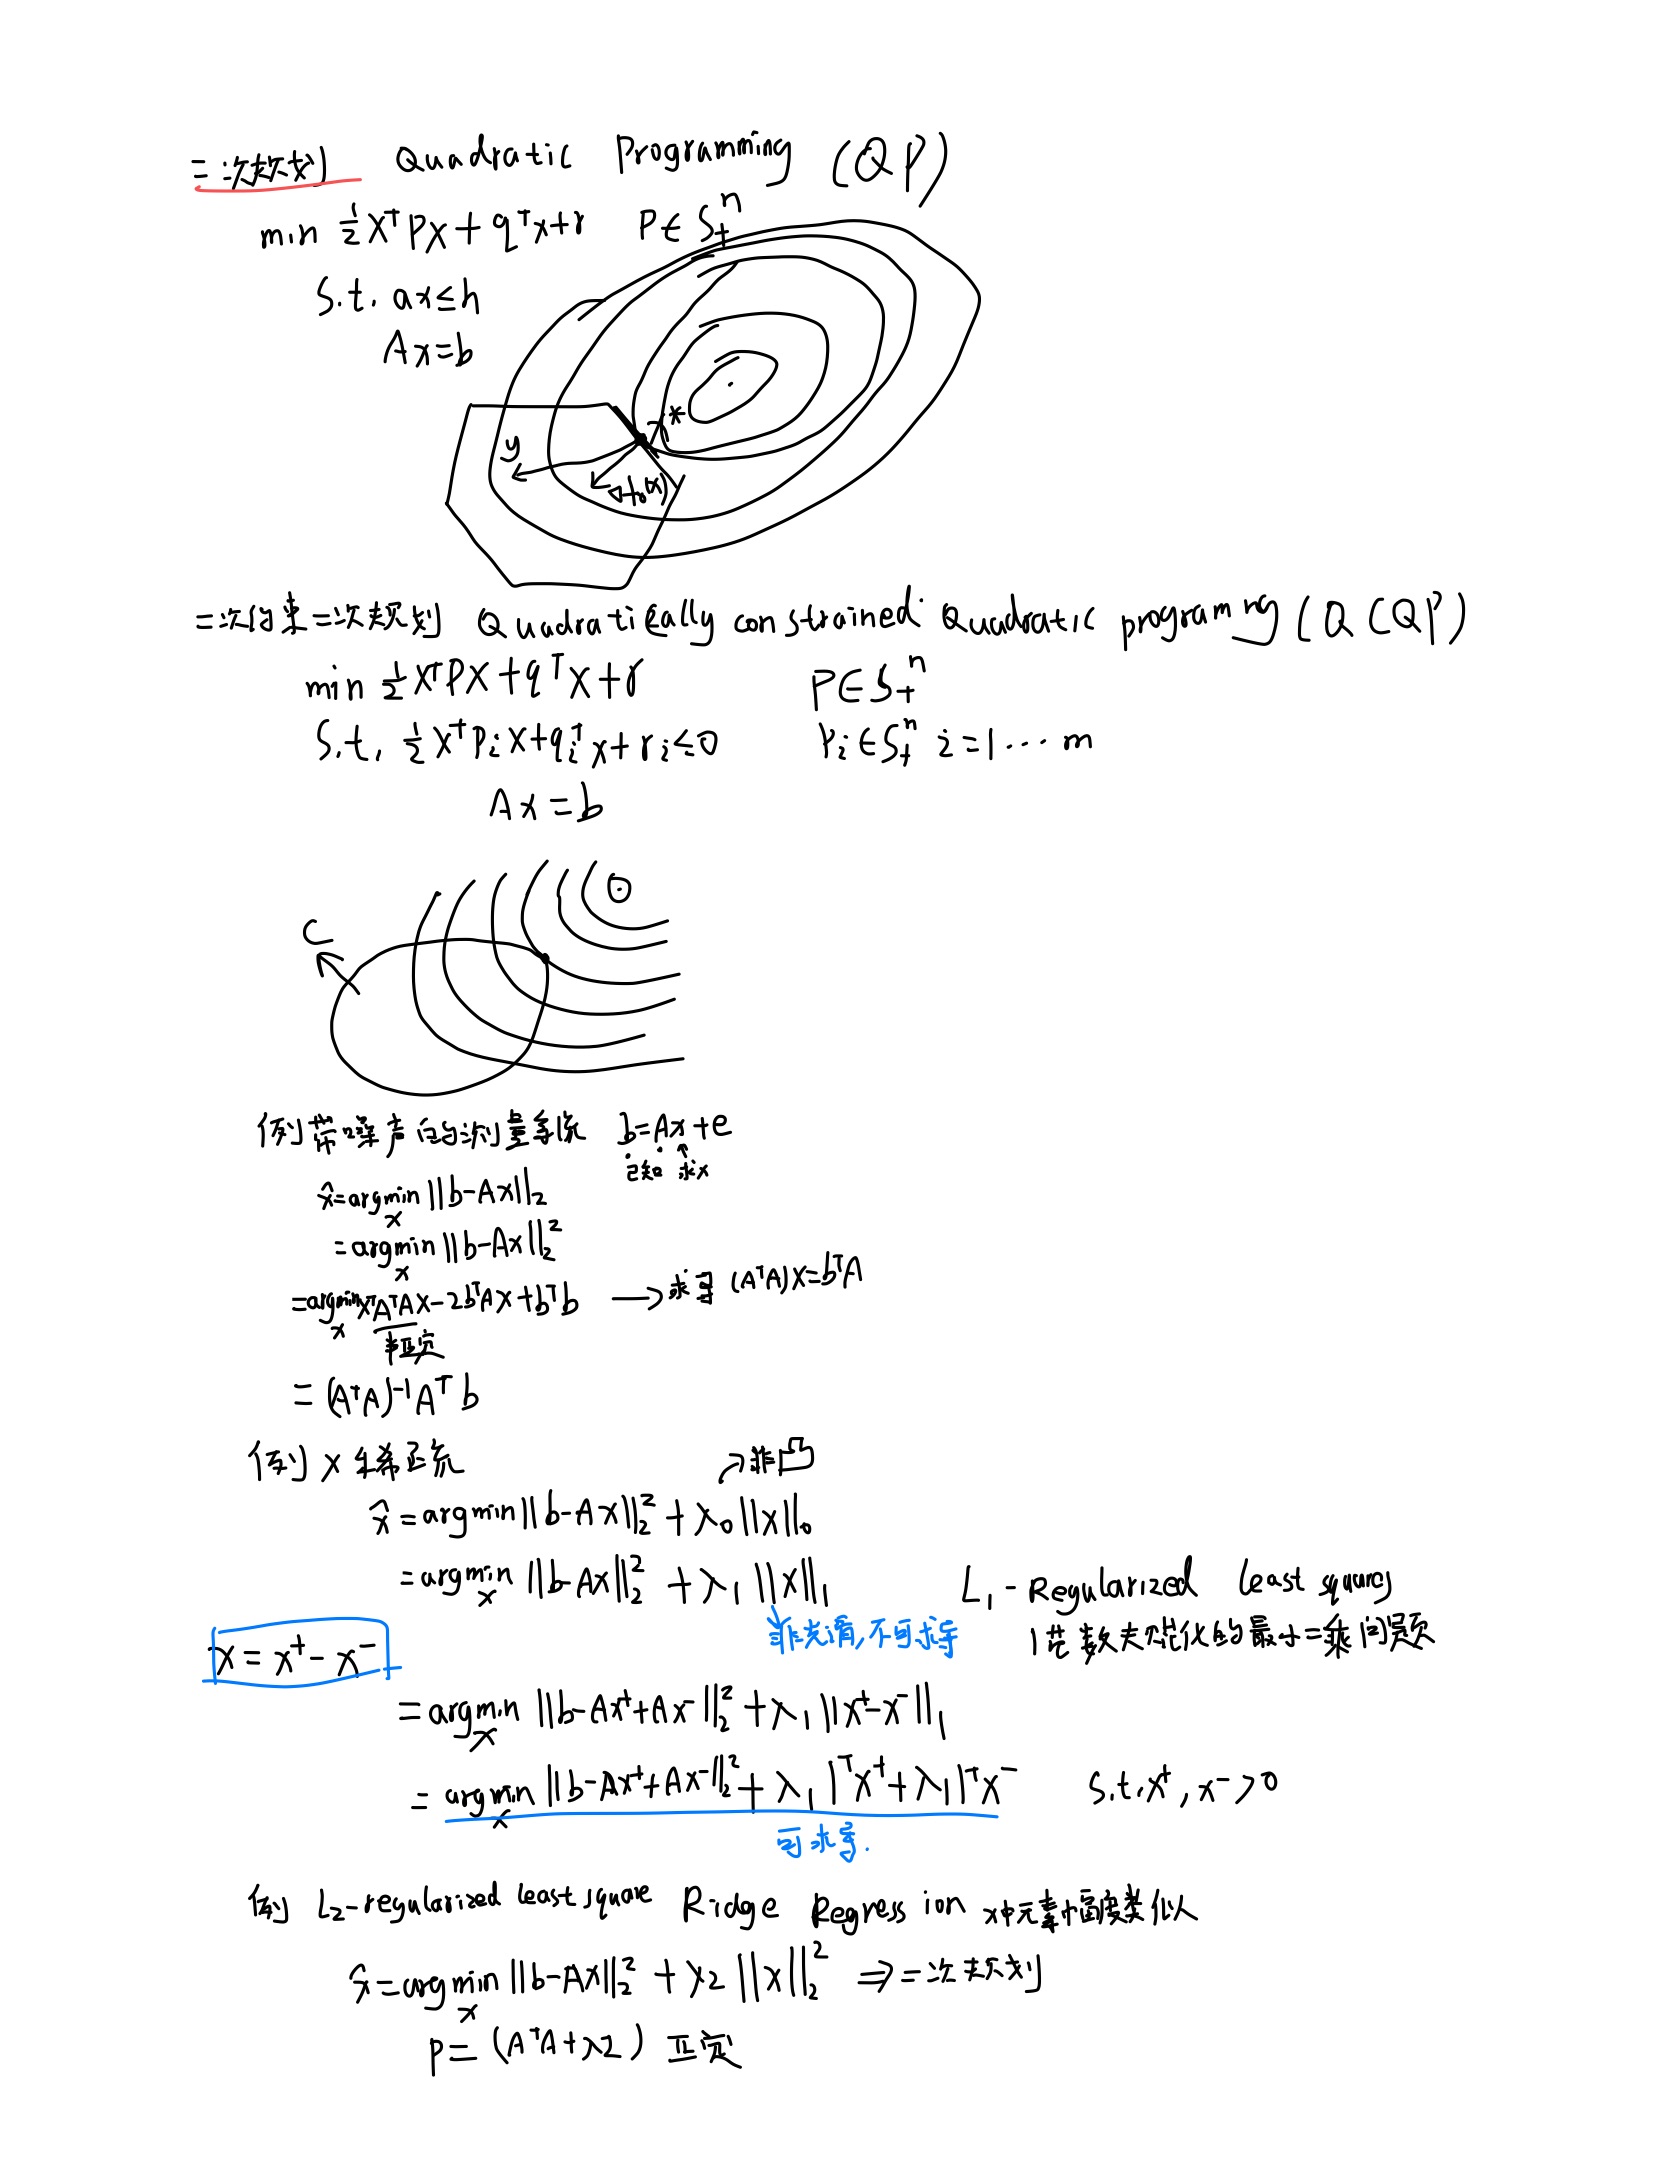 二次规划 Quadratic Programming (QP)
min ½xᵀPx + qᵀx+r P∈S₊ⁿ
S.t. ax≤h
Ax=b
x*
y
∇f₀(x)
二次约束二次规划 Quadratically constrained Quadratic programing (QCQP)
min ½xᵀPx+qᵀx+r P∈S₊ⁿ
S.t. ½xᵀPᵢx+qᵢᵀx+rᵢ≤0 Pᵢ∈S₊ⁿ i=1⋯m
Ax=b
C
例 带噪声的测量系统 b=Ax+e
已知 求x
x̂=argmin ||b-Ax||₂
x
=argmin ||b-Ax||₂²
x
=argmin xᵀAᵀAx-2bᵀAx+bᵀb ⟶求导 (AᵀA)x=bᵀA
x
半正定
= (AᵀA)⁻¹Aᵀb
例 x 是稀疏
→非凸
x̂ = argmin||b-Ax||₂² + λ₀||x||₀
= argmin ||b-Ax||₂² + λ₁||x||₁ L₁-Regularized least squares
x
非光滑,不可求导 1范数规范化的最小二乘问题
x = x⁺ - x⁻
= argmin ||b-Ax⁺+Ax⁻||₂² + λ₁||x⁺-x⁻||₁
x
= argmin ||b-Ax⁺+Ax⁻||₂² + λ₁1ᵀx⁺+λ₁1ᵀx⁻ S.t. x⁺, x⁻>0
x
可求导.
例 L₂-regularized least square Ridge Regression x中元素幅度类似
x̂ = argmin ||b-Ax||₂² + λ2||x||₂² ⇒二次规划
x
P= (AᵀA+λ2) 正定